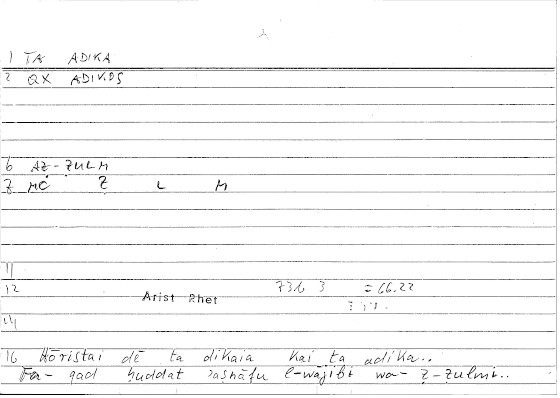 1 TA ADIKA
2 QX ADIKOS
6 AẒ-ẒULM
7 MC Ẓ L M
11
12 Arist Rhet 73b 3 = 66.22
14
16 Hōristai dē ta dikaia kai ta adika..
Fa- qad ḥuddat ʾaṣnāfu l-wāǧibi wa- ẓ-ẓulmi..